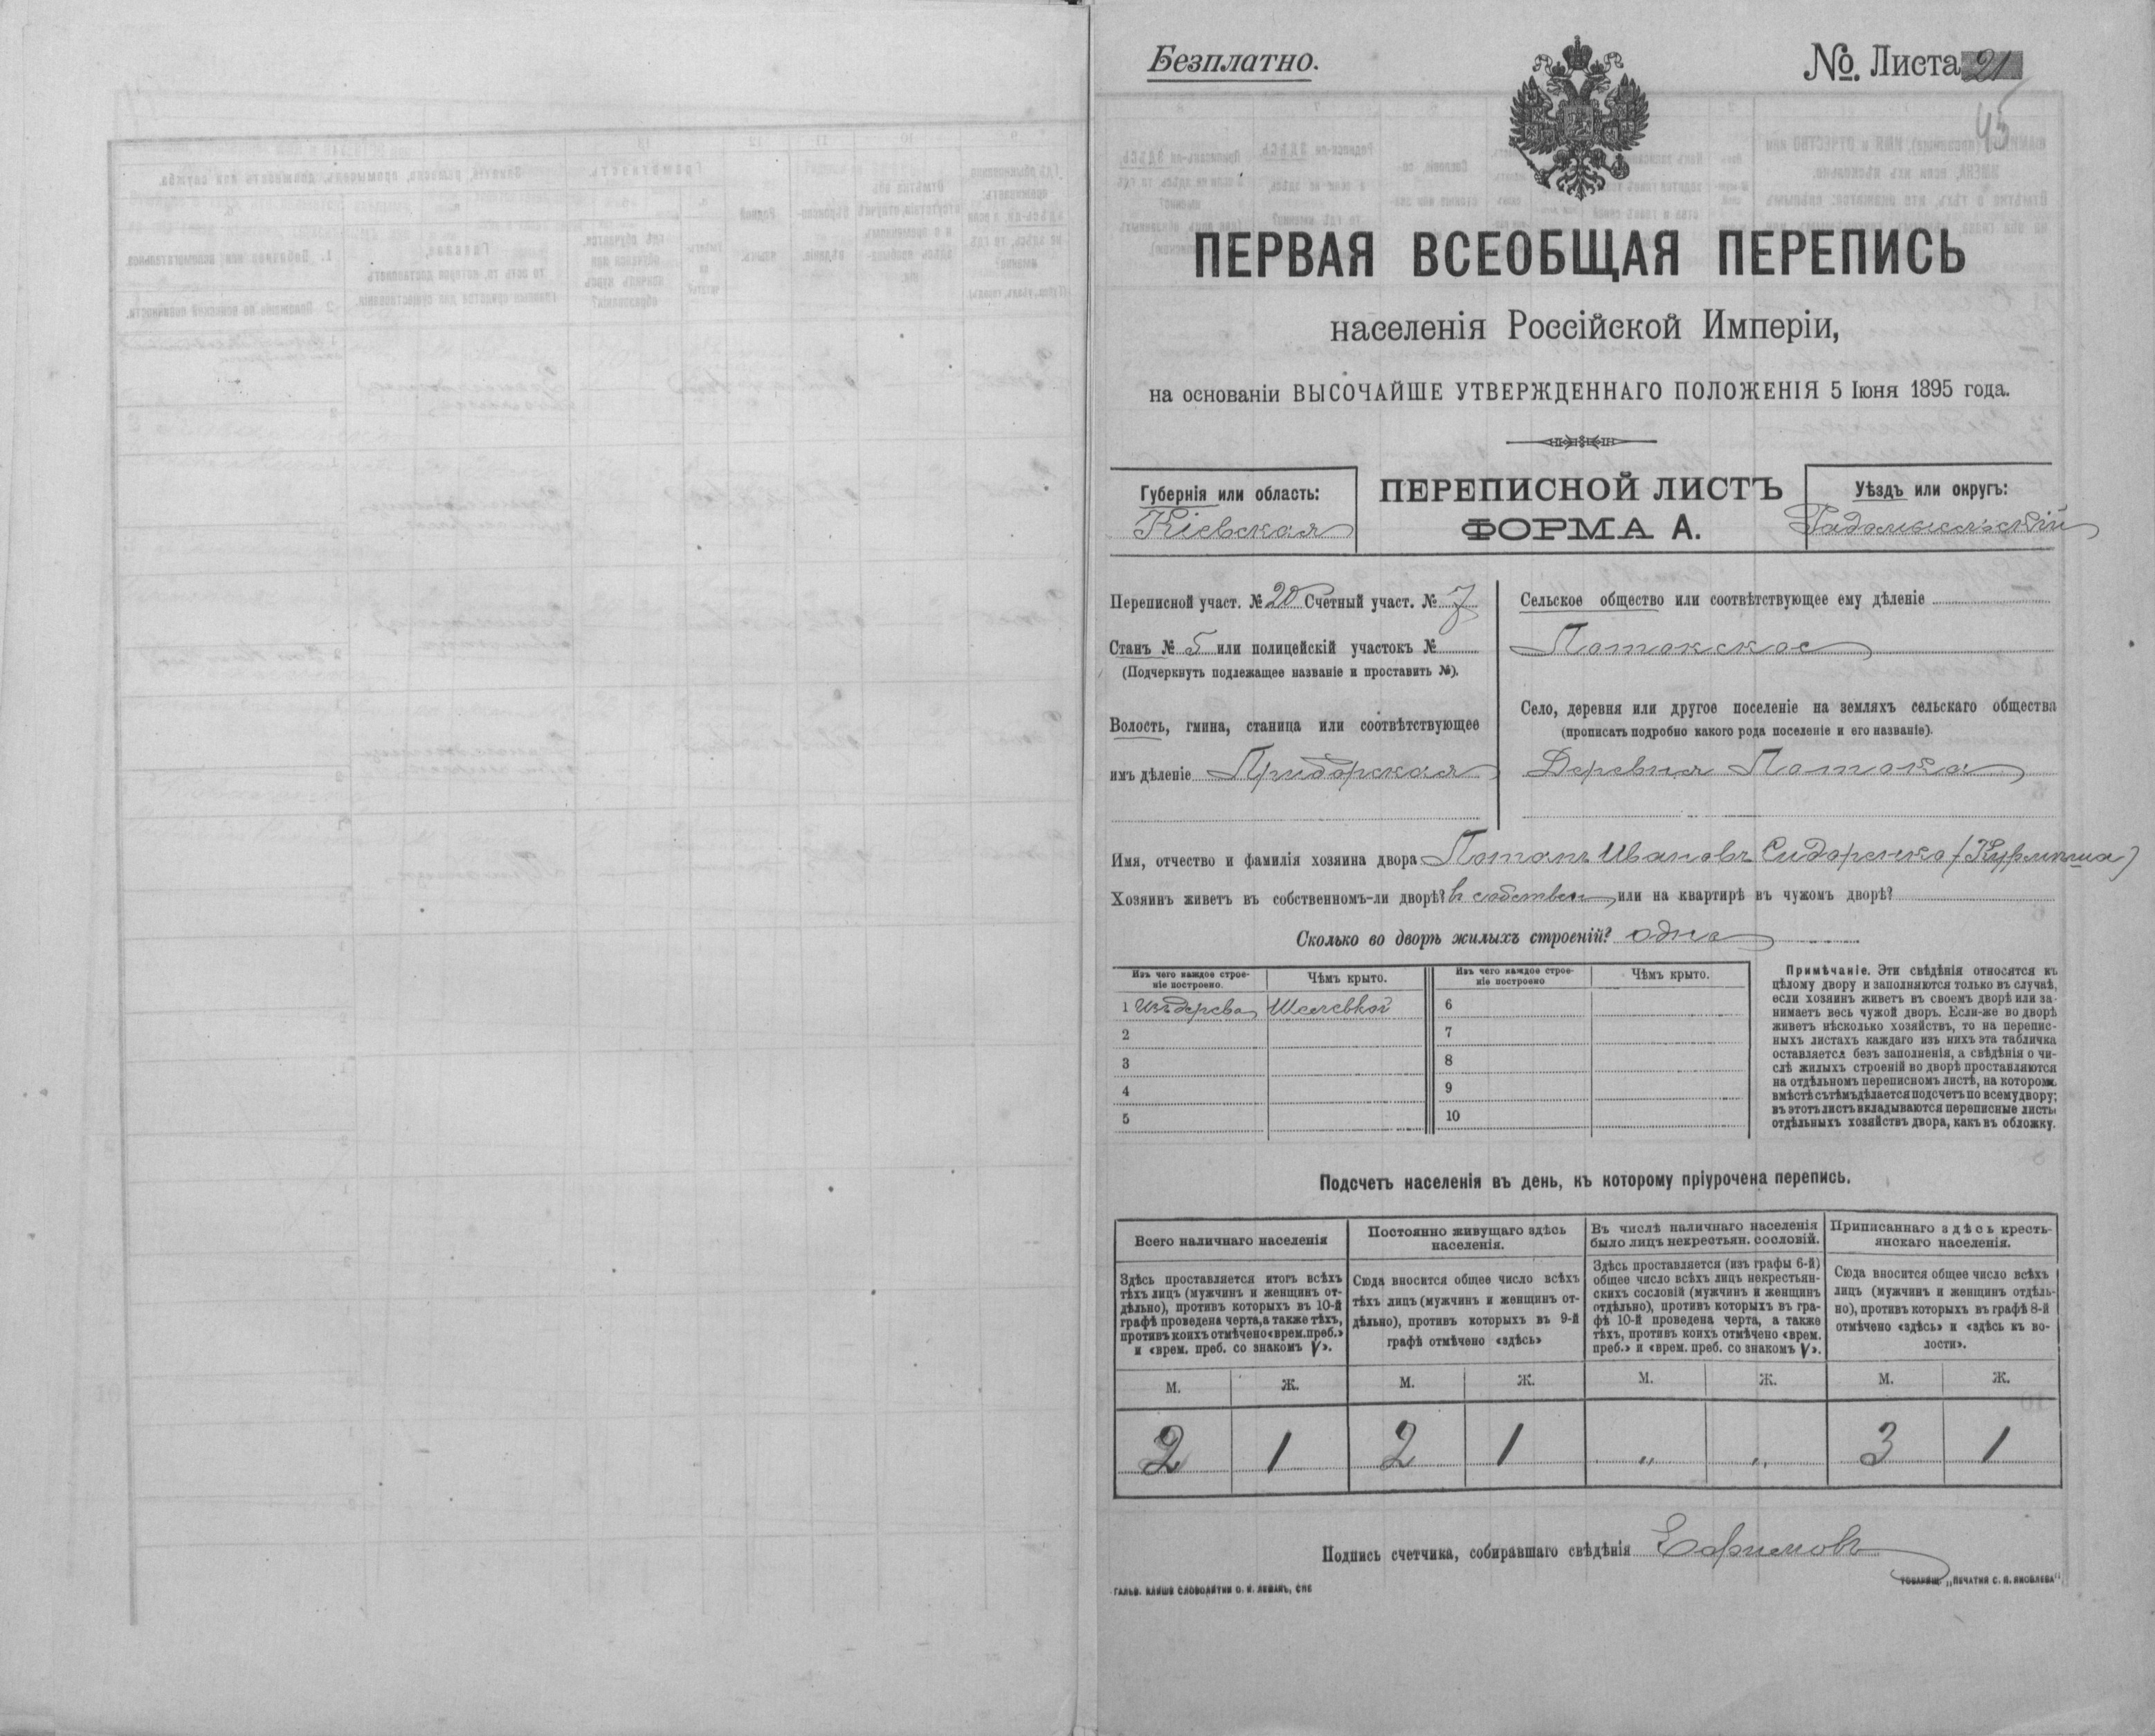 Безплатно.
№ Листа 21
45
ПЕРВАЯ ВСЕОБЩАЯ ПЕРЕПИСЬ
населенія Россійской Имперіи,
на основаніи ВЫСОЧАЙШЕ УТВЕРЖДЕННАГО ПОЛОЖЕНІЯ 5 Іюня 1895 года.
Губернія или область:
Кіевская
ПЕРЕПИСНОЙ ЛИСТЪ
ФОРМА А.
Уѣздъ или округъ:
Радомысльскій
Переписной участ. № 20 Счетный участ. № 7
Станъ № 5 или полицейскій участокъ №
(Подчеркнуть подлежащее названіе и проставить №).
Волость, гмина, станица или соотвѣтствующее
имъ дѣленіе Приборская
Сельское общество или соотвѣтствующее ему дѣленіе
Потокское
Село, деревня или другое поселеніе на земляхъ сельскаго общества
(прописать подробно какого рода поселеніе и его названіе).
Деревня Потока
Имя, отчество и фамилія хозяина двора Потапъ Ивановъ Сидоренко
Хозяинъ живетъ въ собственномъ-ли дворѣ? въ собствен или на квартирѣ въ чужомъ дворѣ?
Сколько во дворѣ жилыхъ строеній? одно
Изъ чего каждое строе-
ніе построено.
Чѣмъ крыто.
Изъ чего каждое строе-
ніе построено
Чѣмъ крыто.
1 Изъ дерева Шелевкой 6
2 7
3 8
4 9
5 10
Примѣчаніе. Эти свѣдѣнія относятся къ
цѣлому двору и заполняются только въ случаѣ,
если хозяинъ живетъ въ своемъ дворѣ или за-
нимаетъ весь чужой дворъ. Если-же во дворѣ
живетъ нѣсколько хозяйствъ, то на перепис-
ныхъ листахъ каждаго изъ нихъ эта табличка
оставляется безъ заполненія, а свѣдѣнія о чи-
слѣ жилыхъ строеній во дворѣ проставляются
на отдѣльномъ переписномъ листѣ, на которомъ
вмѣстѣ съ тѣмъ дѣлается подсчетъ по всему двору;
въ этотъ листъ вкладываются переписные листы
отдѣльныхъ хозяйствъ двора, какъ въ обложку.
Подсчетъ населенія въ день, къ которому пріурочена перепись.
Всего наличнаго населенія
Здѣсь проставляется итогъ всѣхъ
тѣхъ лицъ (мужчинъ и женщинъ от-
дѣльно), противъ которыхъ въ 10-й
графѣ проведена черта, а также тѣхъ,
противъ коихъ отмѣчено «врем. преб.»
и «врем. преб. со знакомъ V».
Постоянно живущаго здѣсь
населенія.
Сюда вносится общее число всѣхъ
тѣхъ лицъ (мужчинъ и женщинъ от-
дѣльно), противъ которыхъ въ 9-й
графѣ отмѣчено «здѣсь»
Въ числѣ наличнаго населенія
было лицъ некрестьян. сословій.
Здѣсь проставляется (изъ графы 6-й)
общее число всѣхъ лицъ некрестьян-
скихъ сословій (мужчинъ и женщинъ
отдѣльно), противъ которыхъ въ гра-
фѣ 10-й проведена черта, а также
тѣхъ, противъ коихъ отмѣчено «врем.
преб.» и «врем. преб. со знакомъ V».
Приписаннаго здѣсь кресть-
янскаго населенія.
Сюда вносится общее число всѣхъ
лицъ (мужчинъ и женщинъ отдѣль-
но), противъ которыхъ въ графѣ 8-й
отмѣчено «здѣсь» и «здѣсь къ во-
лости».
М. Ж. М. Ж. М. Ж. М. Ж.
2 1 2 1 „ „ 3 1
Подпись счетчика, собиравшаго свѣдѣнія Ефимовъ
ГАЛЬВ. КЛИШЕ СЛОВОЛИТНИ О. И. ЛЕМАНЪ, СПБ
ТОВАРИЩ. „ПЕЧАТНЯ С. П. ЯКОВЛЕВА“